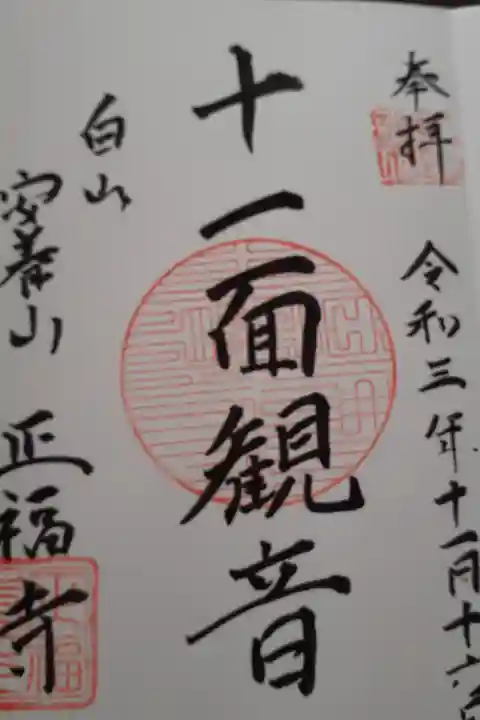 奉拝
令和三年十一月十六日
十一面観音
白山
安養山 正福寺